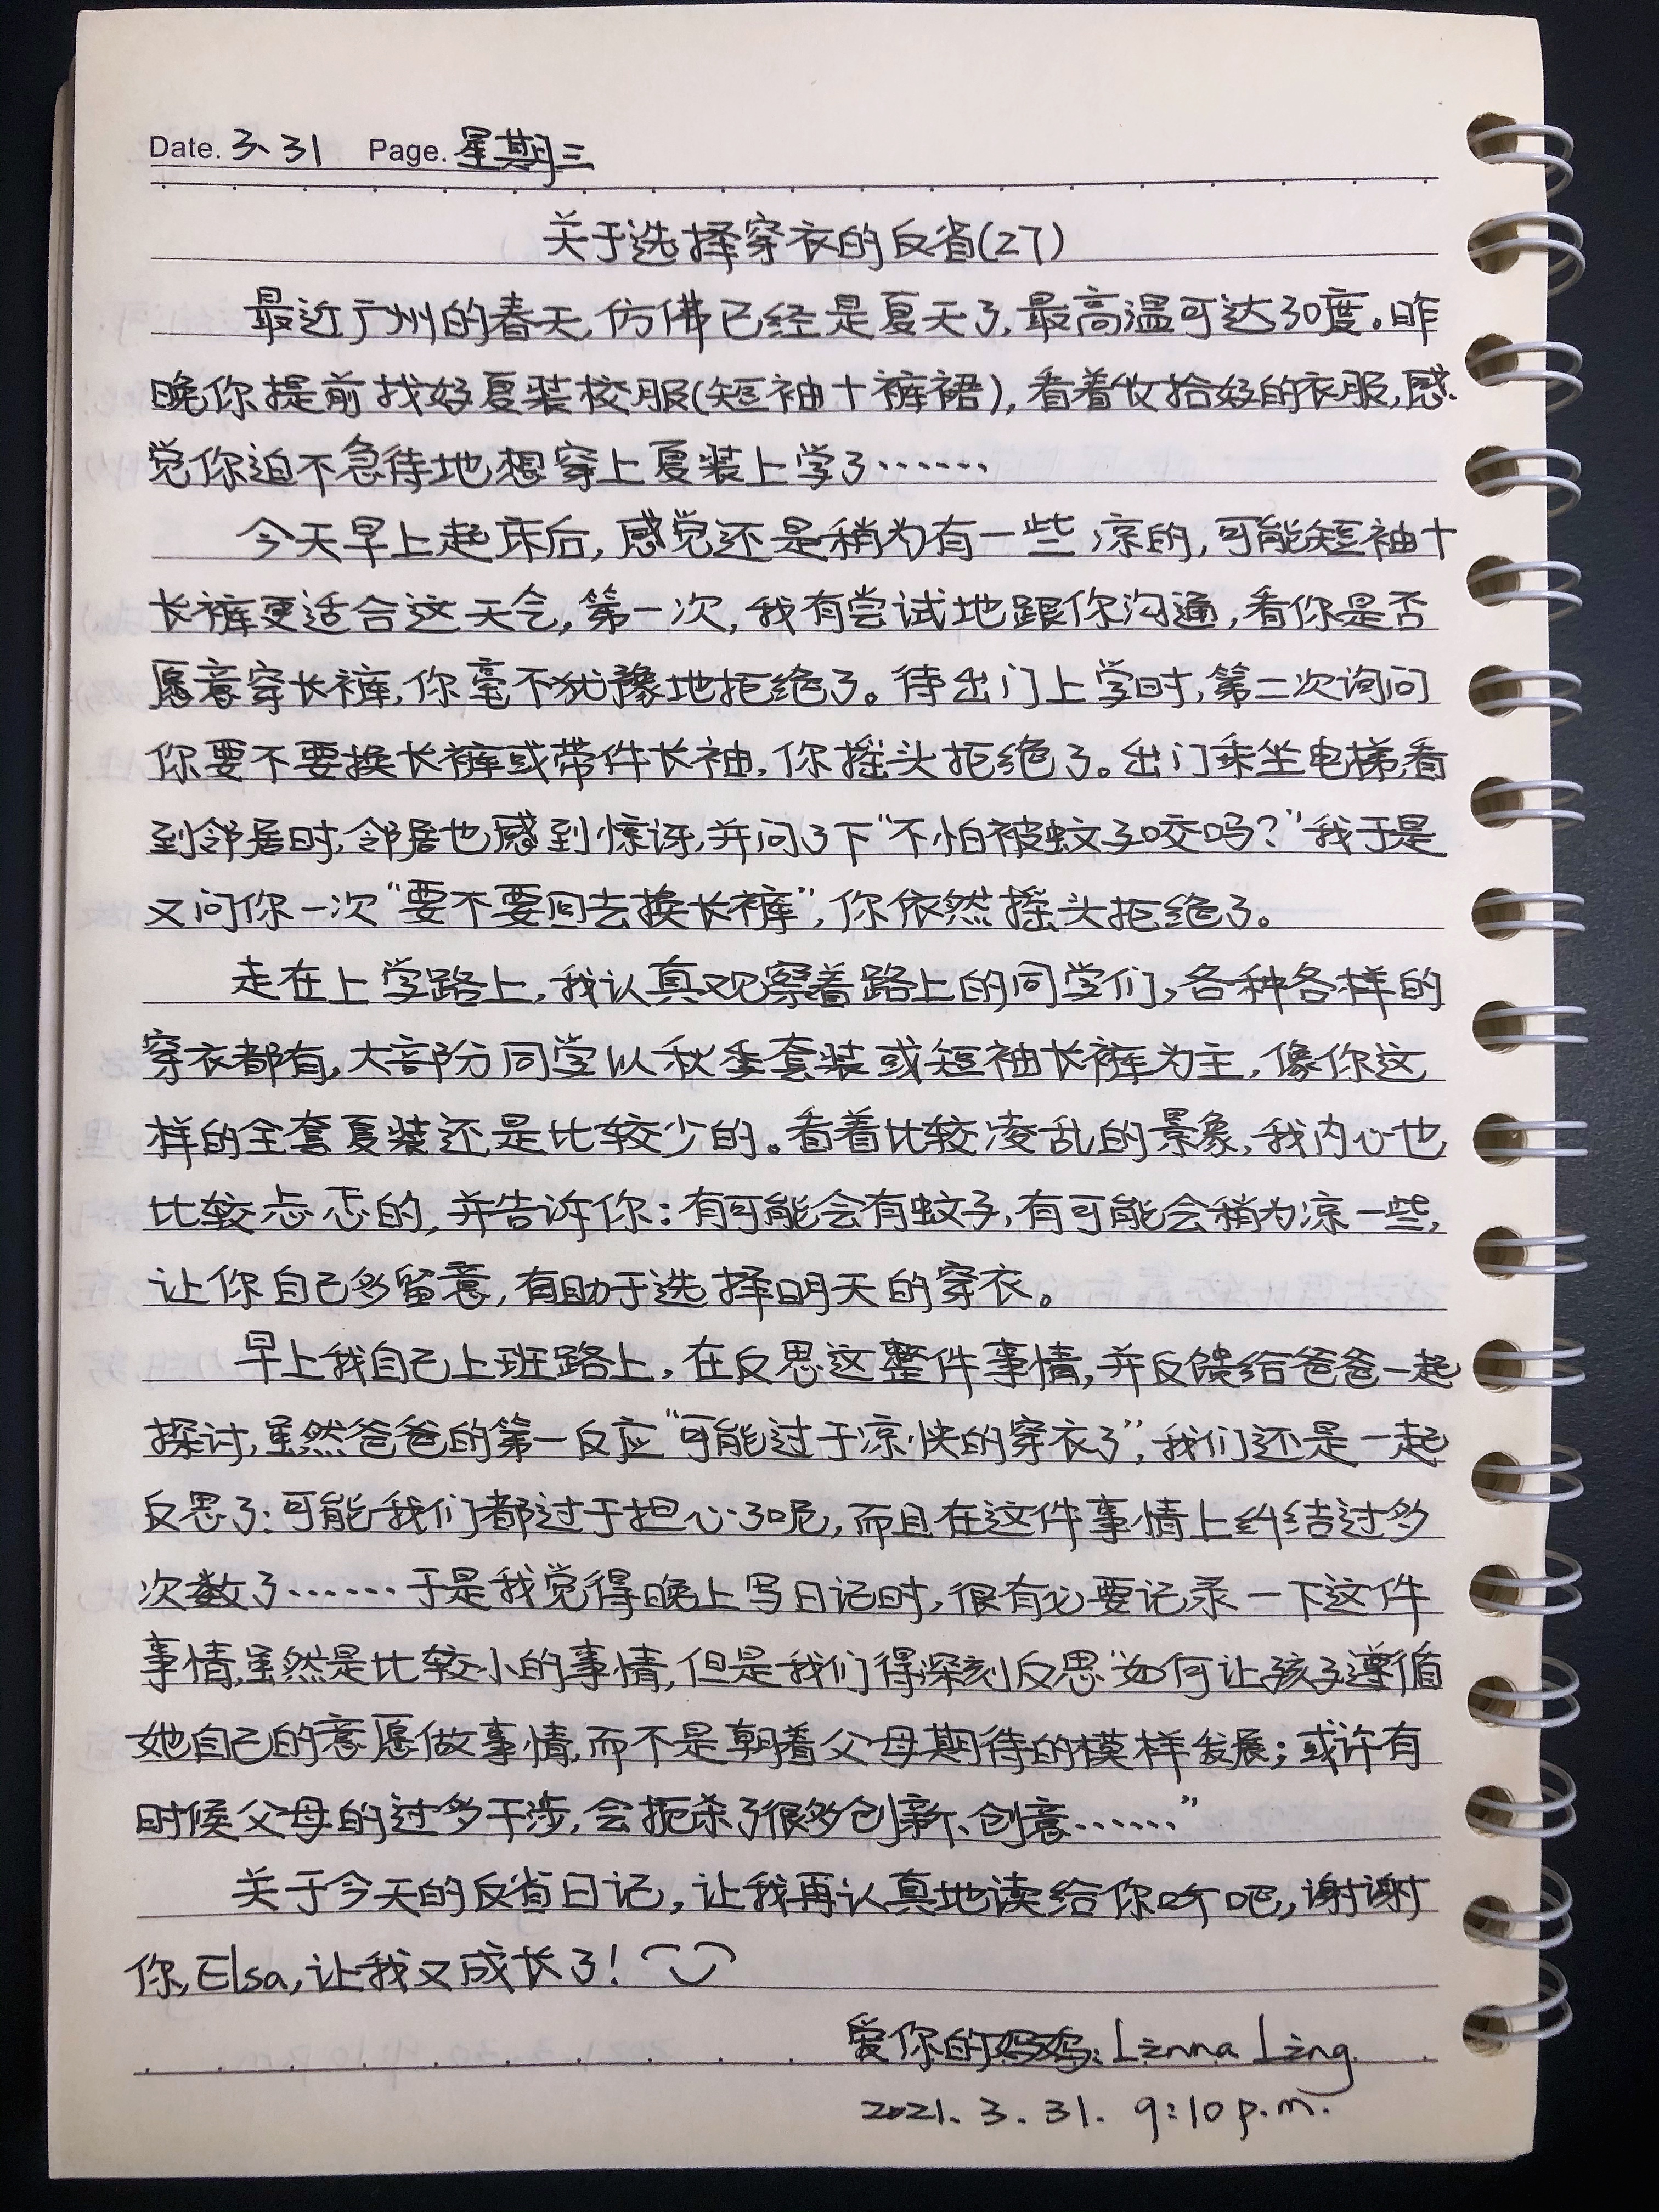 Date. 3、31 Page. 星期三
关于选择穿衣的反省(27)
最近广州的春天,仿佛已经是夏天了,最高温可达30度。昨
晚你提前找好夏装校服(短袖+裤裙),看着收拾好的衣服,感
觉你迫不急待地想穿上夏装上学了……
今天早上起床后,感觉还是稍为有一些凉的,可能短袖+
长裤更适合这天气,第一次,我有尝试地跟你沟通,看你是否
愿意穿长裤,你毫不犹豫地拒绝了。待出门上学时,第二次询问
你要不要换长裤或带件长袖,你摇头拒绝了。出门乘坐电梯看
到邻居时,邻居也感到惊讶,并问了下“不怕被蚊子咬吗?”我于是
又问你一次“要不要回去换长裤”,你依然摇头拒绝了。
走在上学路上,我认真观察着路上的同学们,各种各样的
穿衣都有,大部分同学以秋季套装或短袖长裤为主,像你这
样的全套夏装还是比较少的。看着比较凌乱的景象,我内心也
比较忐忑的,并告诉你:有可能会有蚊子,有可能会稍为凉一些,
让你自己多留意,有助于选择明天的穿衣。
早上我自己上班路上,在反思这整件事情,并反馈给爸爸一起
探讨,虽然爸爸的第一反应“可能过于凉快的穿衣了”,我们还是一起
反思了:可能我们都过于担心了呢,而且在这件事情上纠结过多
次数了……于是我觉得晚上写日记时,很有必要记录一下这件
事情,虽然是比较小的事情,但是我们得深刻反思“如何让孩子遵循
她自己的意愿做事情,而不是朝着父母期待的模样发展;或许有
时候父母的过多干涉,会扼杀了很多创新、创意……”
关于今天的反省日记,让我再认真地读给你听吧,谢谢
你,Elsa,让我又成长了!
爱你的妈妈:Linna Ling
2021.3.31. 9:10 p.m.